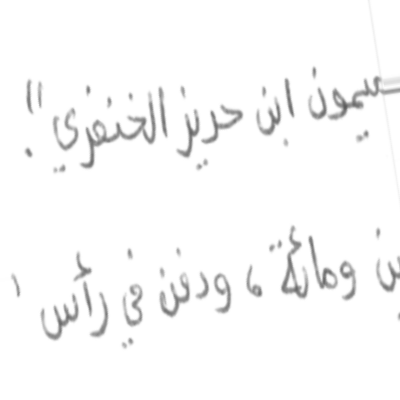 ميمون ابن حريز الخنفري".
ومائة، ودفن في رأس